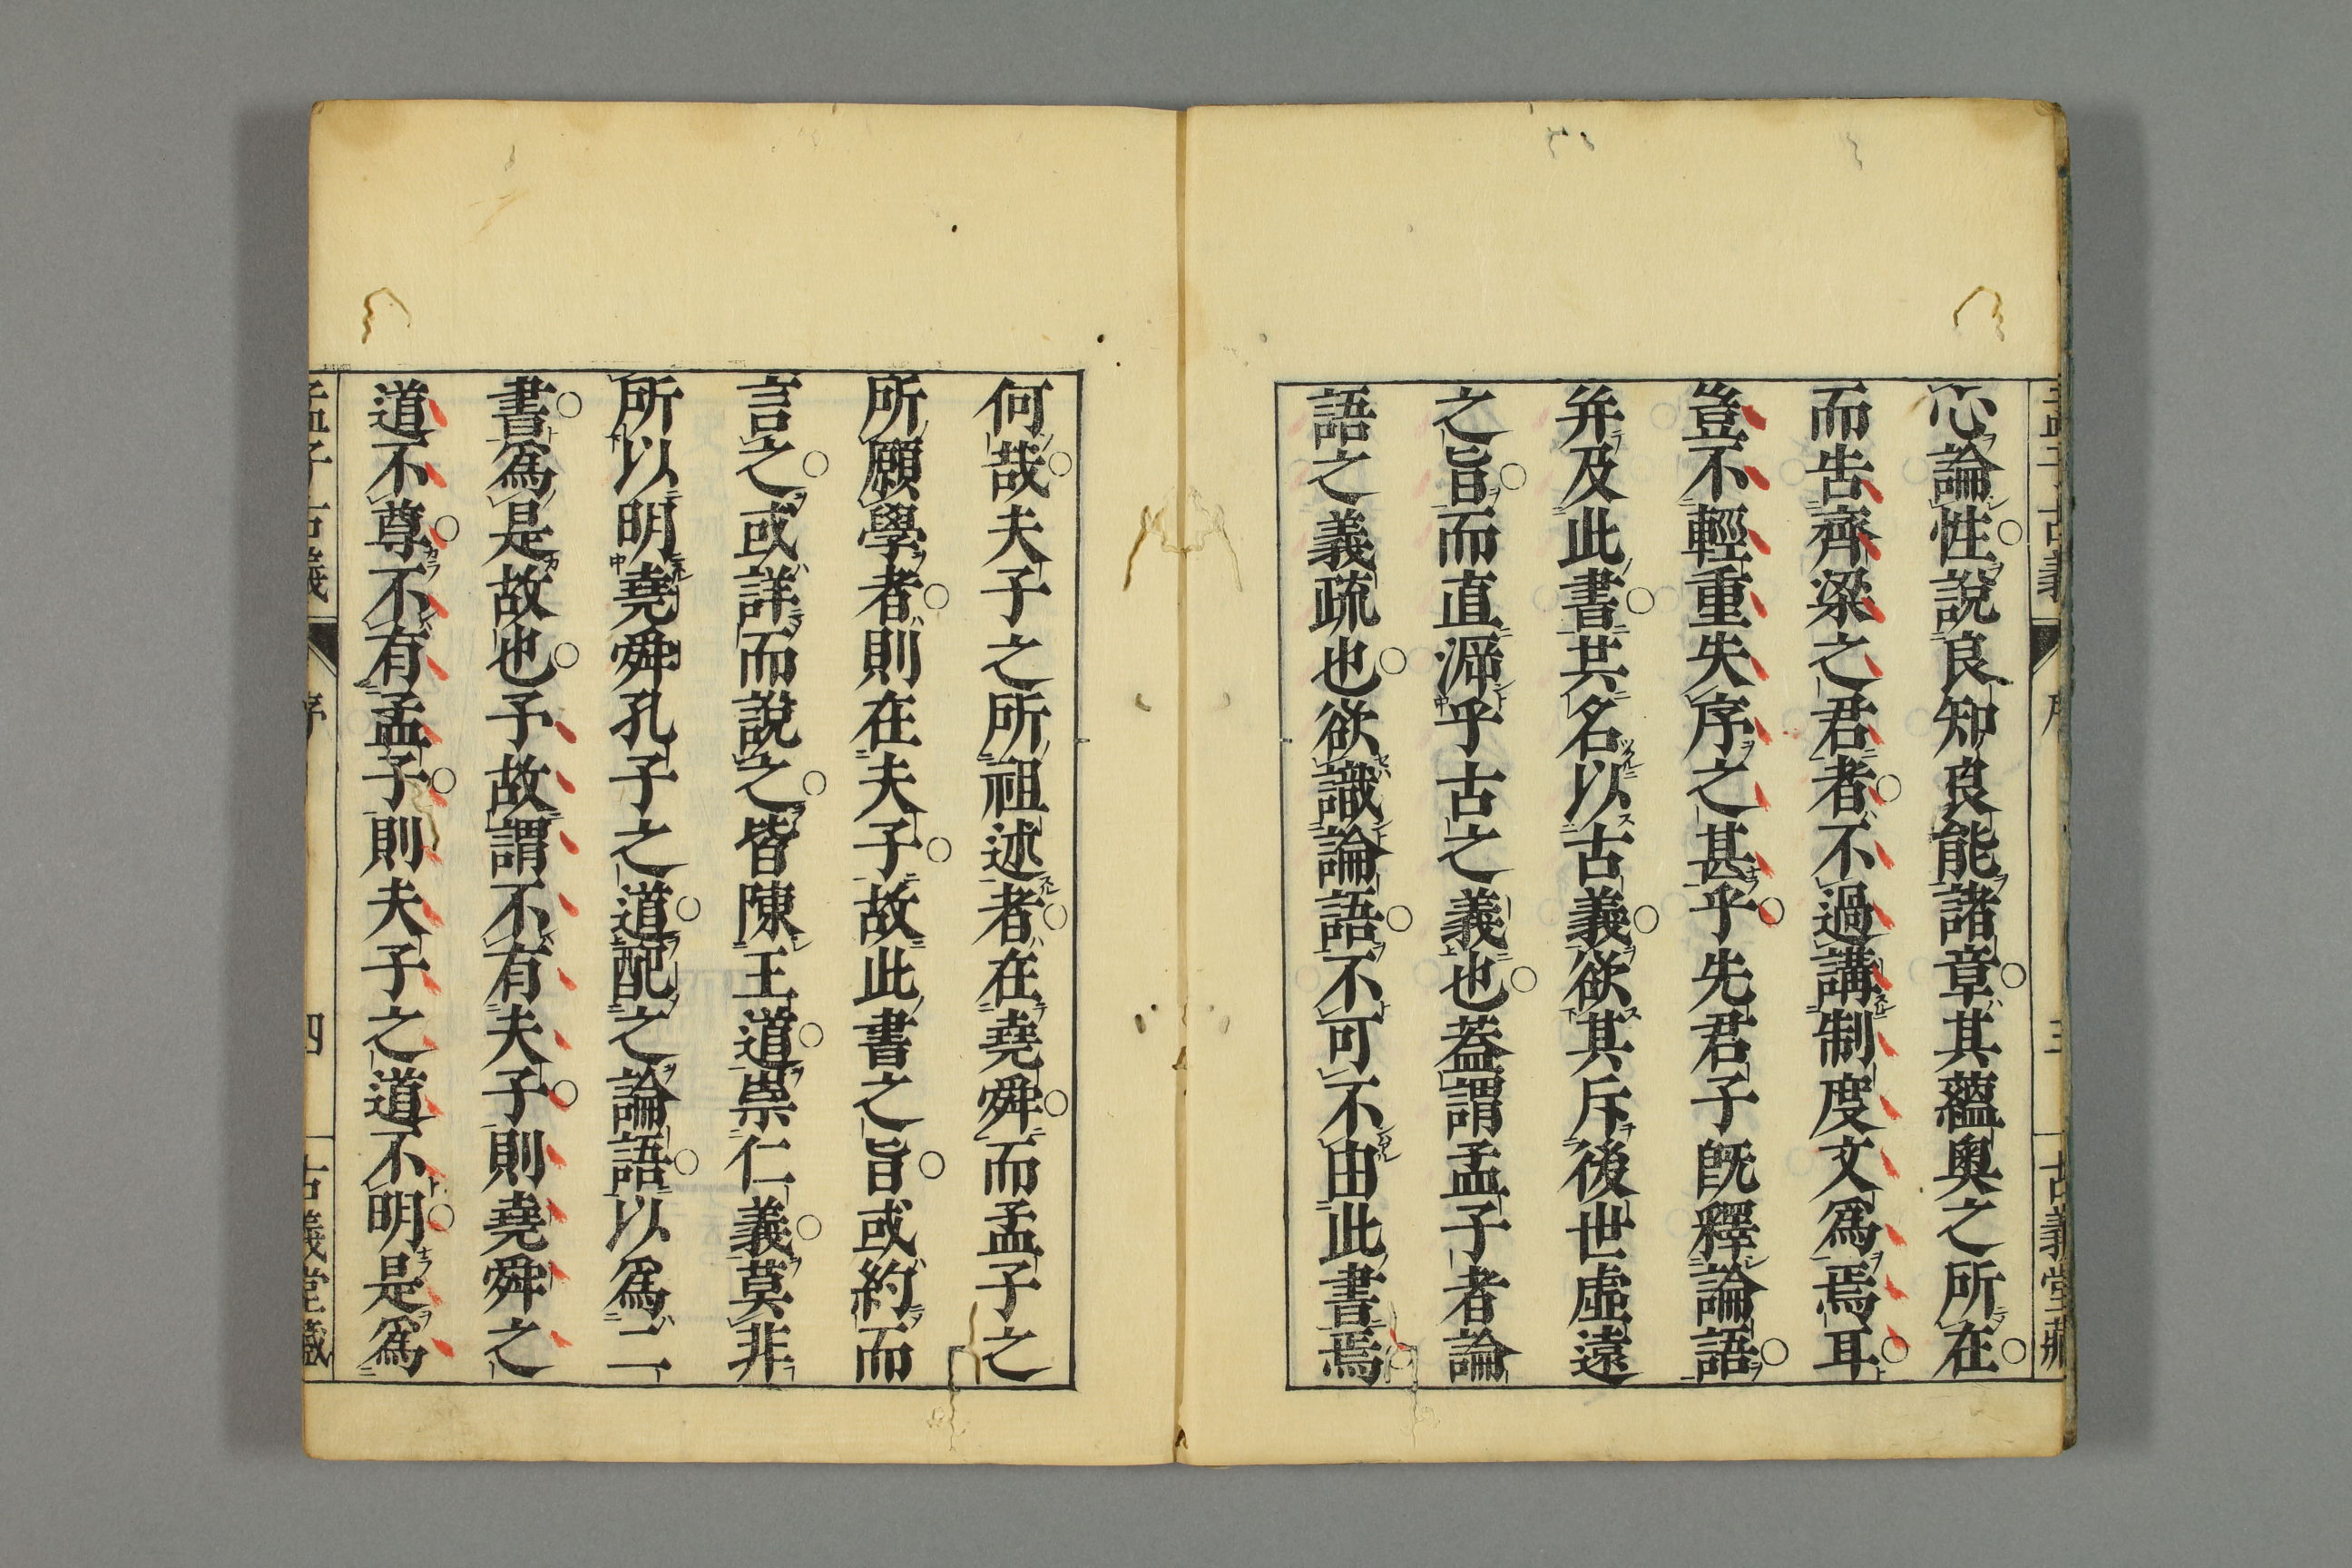 心論性說良知良能諸章其蘊奧之所在
而告齊梁之君者不過講制度文爲焉耳
豈不輕重失序之甚乎先君子旣釋論語
幷及此書其名以古義欲其斥後世虛遠
之旨而直泝乎古之義也葢謂孟子者論
語之義疏也欲識論語不可不由此書焉
何哉夫子之所祖述者在堯舜而孟子之
所願學者則在夫子故此書之旨或約而
言之或詳而說之皆陳王道崇仁義莫非
所以明堯舜孔子之道配之論語以爲二
書爲是故也予故謂不有夫子則堯舜之
道不尊不有孟子則夫子之道不明是爲
孟子古義
序
四
古義堂藏